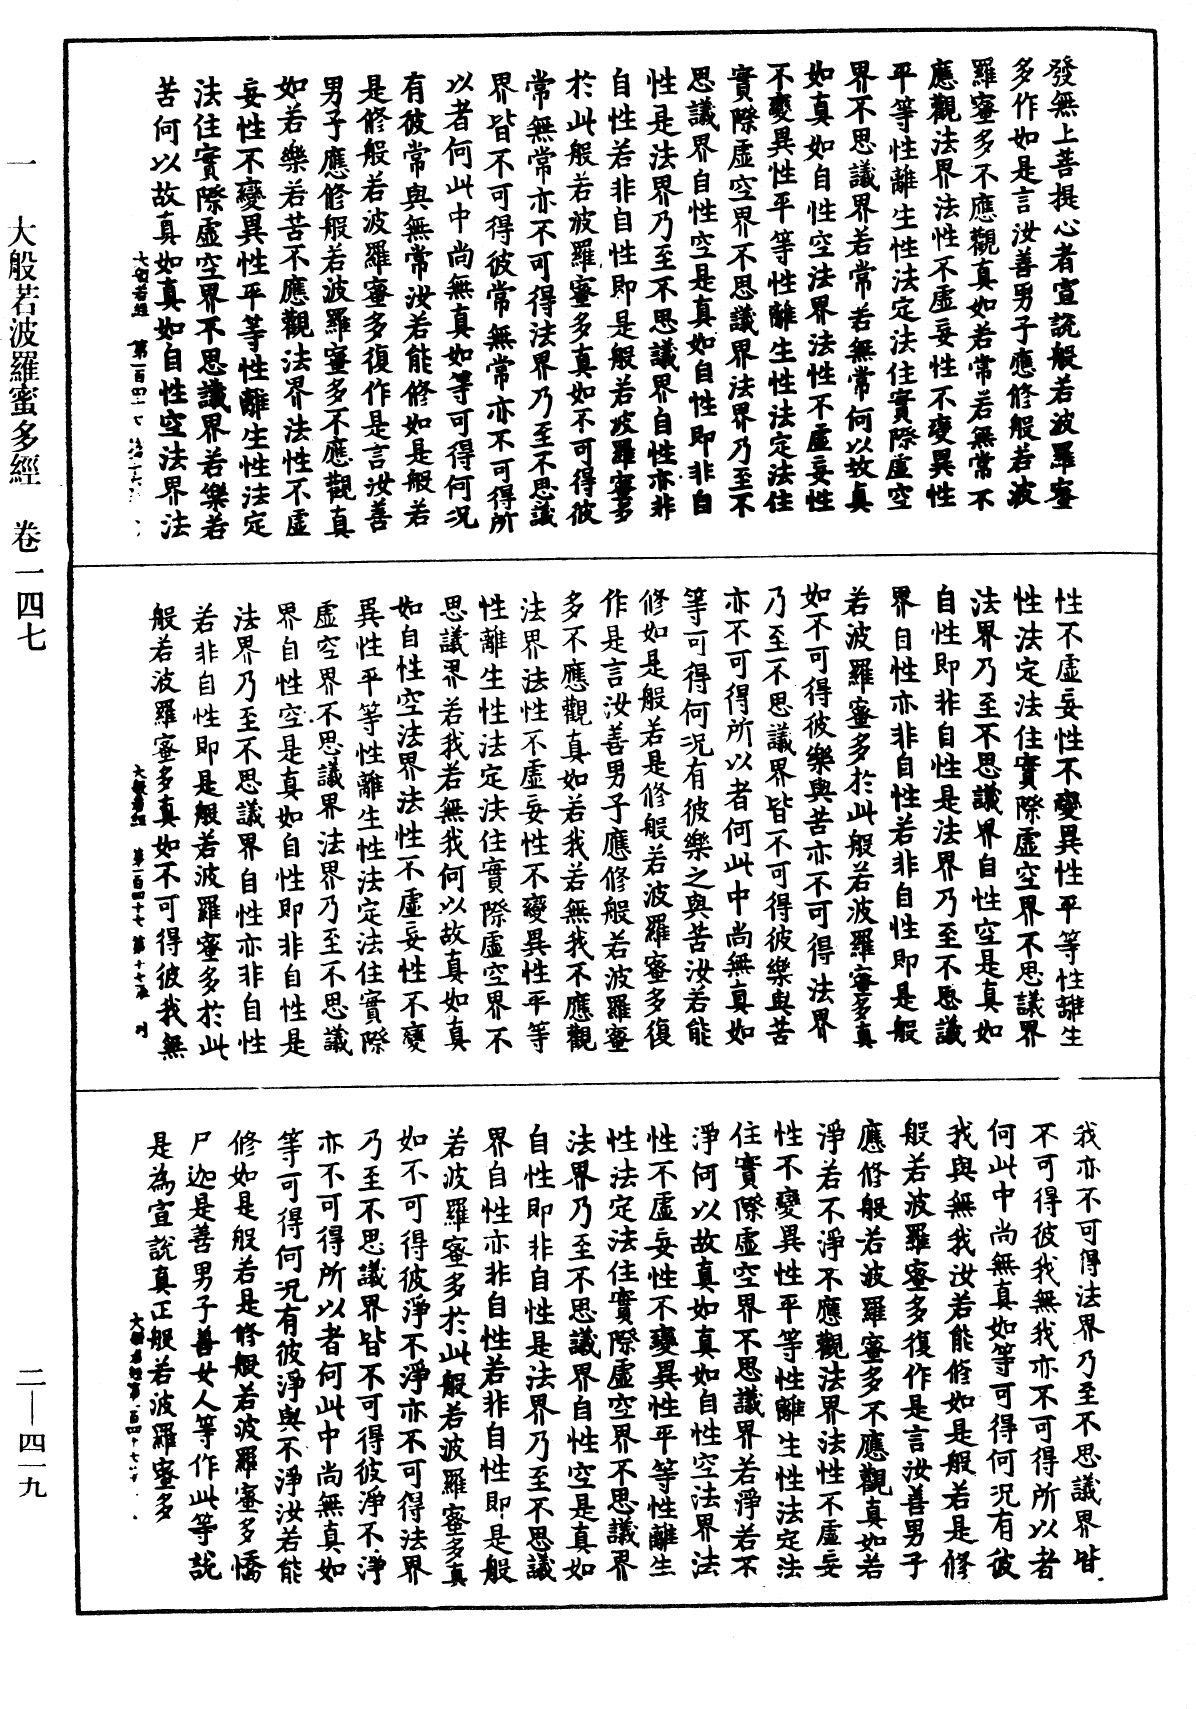 發無上菩提心者宣說般若波羅蜜
多作如是言汝善男子應修般若波
羅蜜多不應觀真如若常若無常不
應觀法界法性不虛妄性不變異性
平等性離生性法定法住實際虛空
界不思議界若常若無常何以故真
如真如自性空法界法性不虛妄性
不變異性平等性離生性法定法住
實際虛空界不思議界法界乃至不
思議界自性空是真如自性即非自
性是法界乃至不思議界自性亦非
自性若非自性即是般若波羅蜜多
於此般若波羅蜜多真如不可得彼
常無常亦不可得法界乃至不思議
界皆不可得彼常無常亦不可得所
以者何此中尚無真如等可得何況
有彼常與無常汝若能修如是般若
是修般若波羅蜜多復作是言汝善
男子應修般若波羅蜜多不應觀真
如若樂若苦不應觀法界法性不虛
妄性不變異性平等性離生性法定
法住實際虛空界不思議界若樂若
苦何以故真如真如自性空法界法
性不虛妄性不變異性平等性離生
性法定法住實際虛空界不思議界
法界乃至不思議界自性空是真如
自性即非自性是法界乃至不思議
界自性亦非自性若非自性即是般
若波羅蜜多於此般若波羅蜜多真
如不可得彼樂與苦亦不可得法界
乃至不思議界皆不可得彼樂與苦
亦不可得所以者何此中尚無真如
等可得何況有彼樂之與苦汝若能
修如是般若是修般若波羅蜜多復
作是言汝善男子應修般若波羅蜜
多不應觀真如若我若無我不應觀
法界法性不虛妄性不變異性平等
性離生性法定法住實際虛空界不
思議界若我若無我何以故真如真
如自性空法界法性不虛妄性不變
異性平等性離生性法定法住實際
虛空界不思議界法界乃至不思議
界自性空是真如自性即非自性是
法界乃至不思議界自性亦非自性
若非自性即是般若波羅蜜多於此
般若波羅蜜多真如不可得彼我無
大般若經 第一百四十七 第十七張 列
我亦不可得法界乃至不思議界皆
不可得彼我無我亦不可得所以者
何此中尚無真如等可得何況有彼
我與無我汝若能修如是般若是修
般若波羅蜜多復作是言汝善男子
應修般若波羅蜜多不應觀真如若
淨若不淨不應觀法界法性不虛妄
性不變異性平等性離生性法定法
住實際虛空界不思議界若淨若不
淨何以故真如真如自性空法界法
性不虛妄性不變異性平等性離生
性法定法住實際虛空界不思議界
法界乃至不思議界自性空是真如
自性即非自性是法界乃至不思議
界自性亦非自性若非自性即是般
若波羅蜜多於此般若波羅蜜多真
如不可得彼淨不淨亦不可得法界
乃至不思議界皆不可得彼淨不淨
亦不可得所以者何此中尚無真如
等可得何況有彼淨與不淨汝若能
修如是般若是修般若波羅蜜多憍
尸迦是善男子善女人等作此等說
是為宣說真正般若波羅蜜多
一 大般若波羅蜜多經 卷一四七
二—四一九